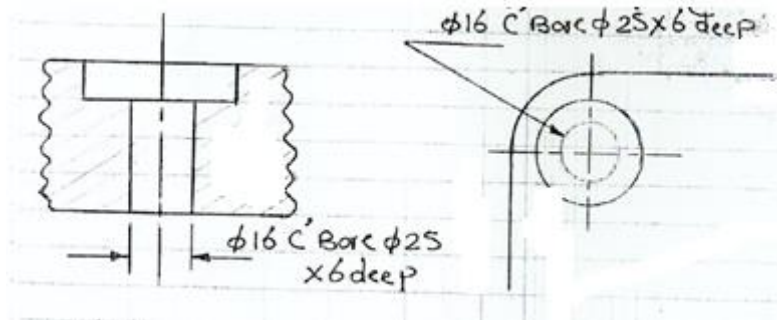 φ16 C' Bore φ25X6 deep
φ16 C' Bore φ25
X6 deep